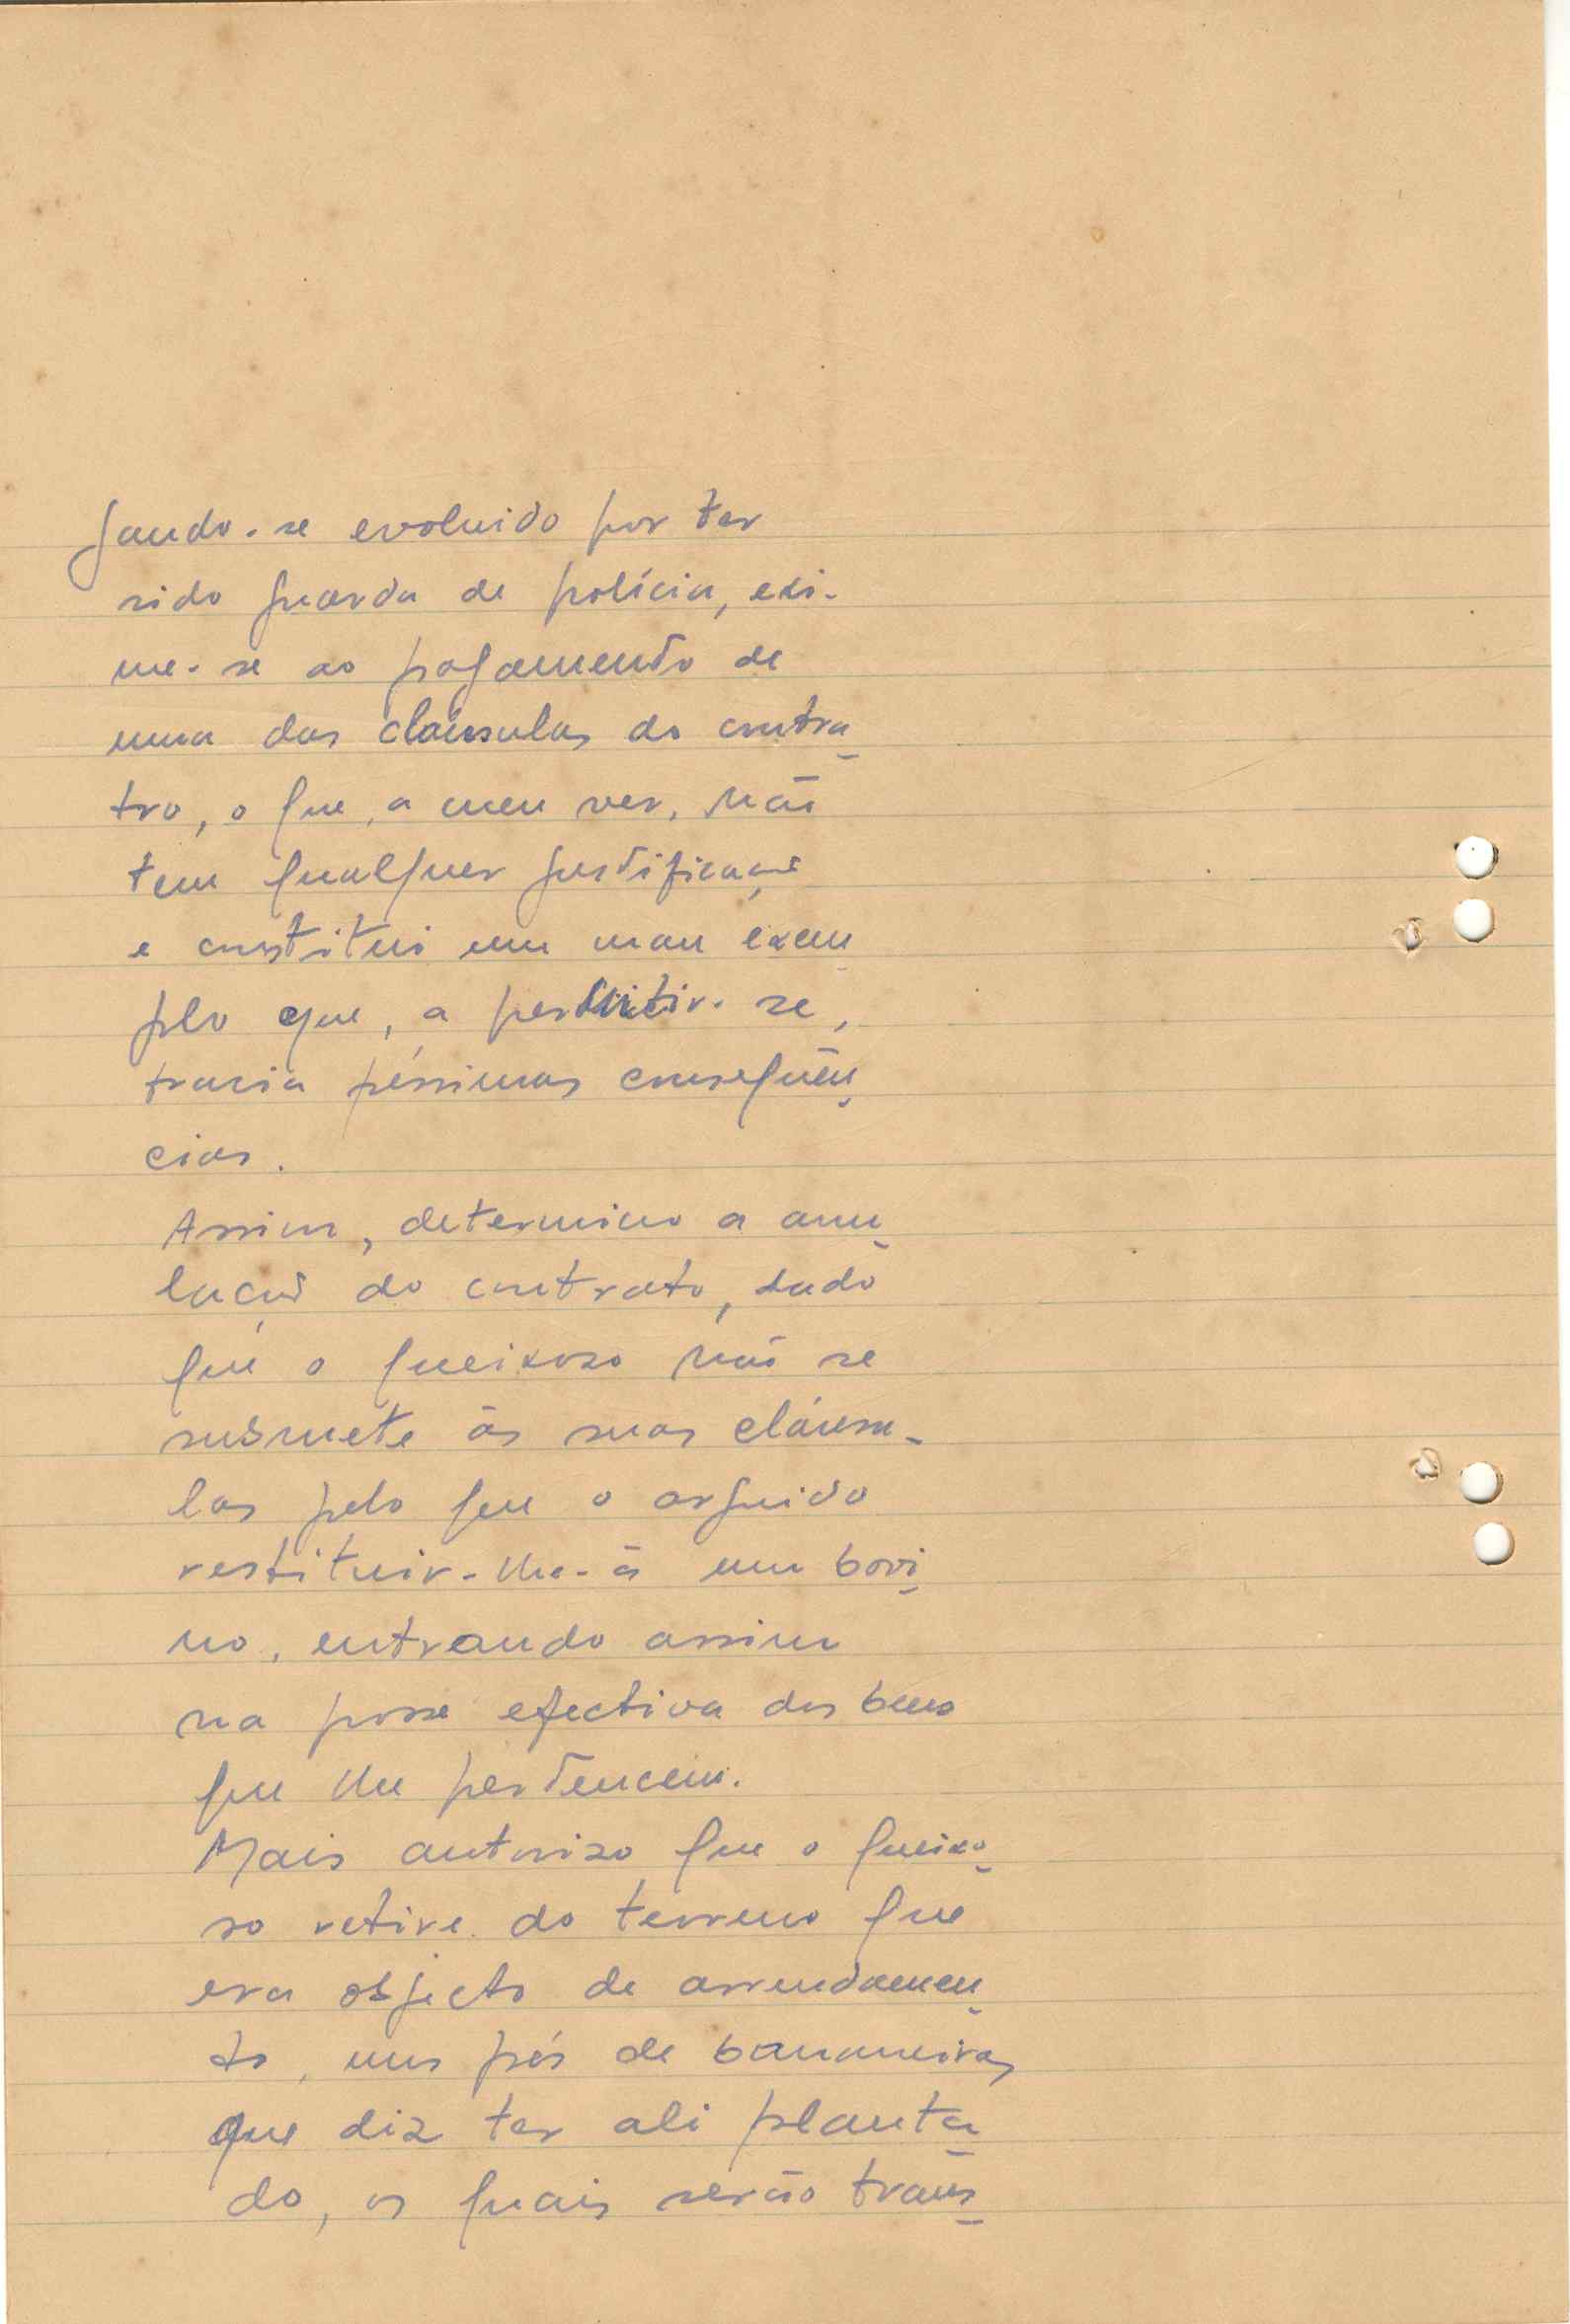 gando-se evoluido por ter
sido guarda de polícia, exi-
me-se ao pagamento de
uma das claúsulas do contra
tro, o que, a meu ver, não
tem qualquer justificação
e constitui um mau exem
plo que, a permitir-se,
traria péssimas consequên
cias.
Assim, determino a anu
lação do contrato, dado
que o queixoso não se
submete às suas cláusu-
las pelo que o arguido
restituir-lhe-á um bovi
no, entrando assim
na posse efectiva dos bens
que lhe pertencem.
Mais autorizo que o queixo
so retire do terreno que
era objecto de arrendamen
to, uns pés de bananeiras
que diz ter ali planta
do, os quais serão trans